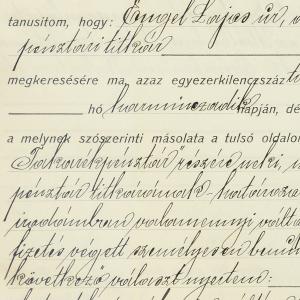 tanusítom, hogy: Engel Lajos úr,
pénztári titkár
megkeresésére ma, azaz egyezerkilencszáz
hó harminczadik napján, dé
a melynek szószerinti másolata a tulsó oldalon
Takarékpénztár részére neki,
pénztár titkárának határoza
irodámban valamennyi vált
fizetés végett személyesen bemu
következő választ nyertem: